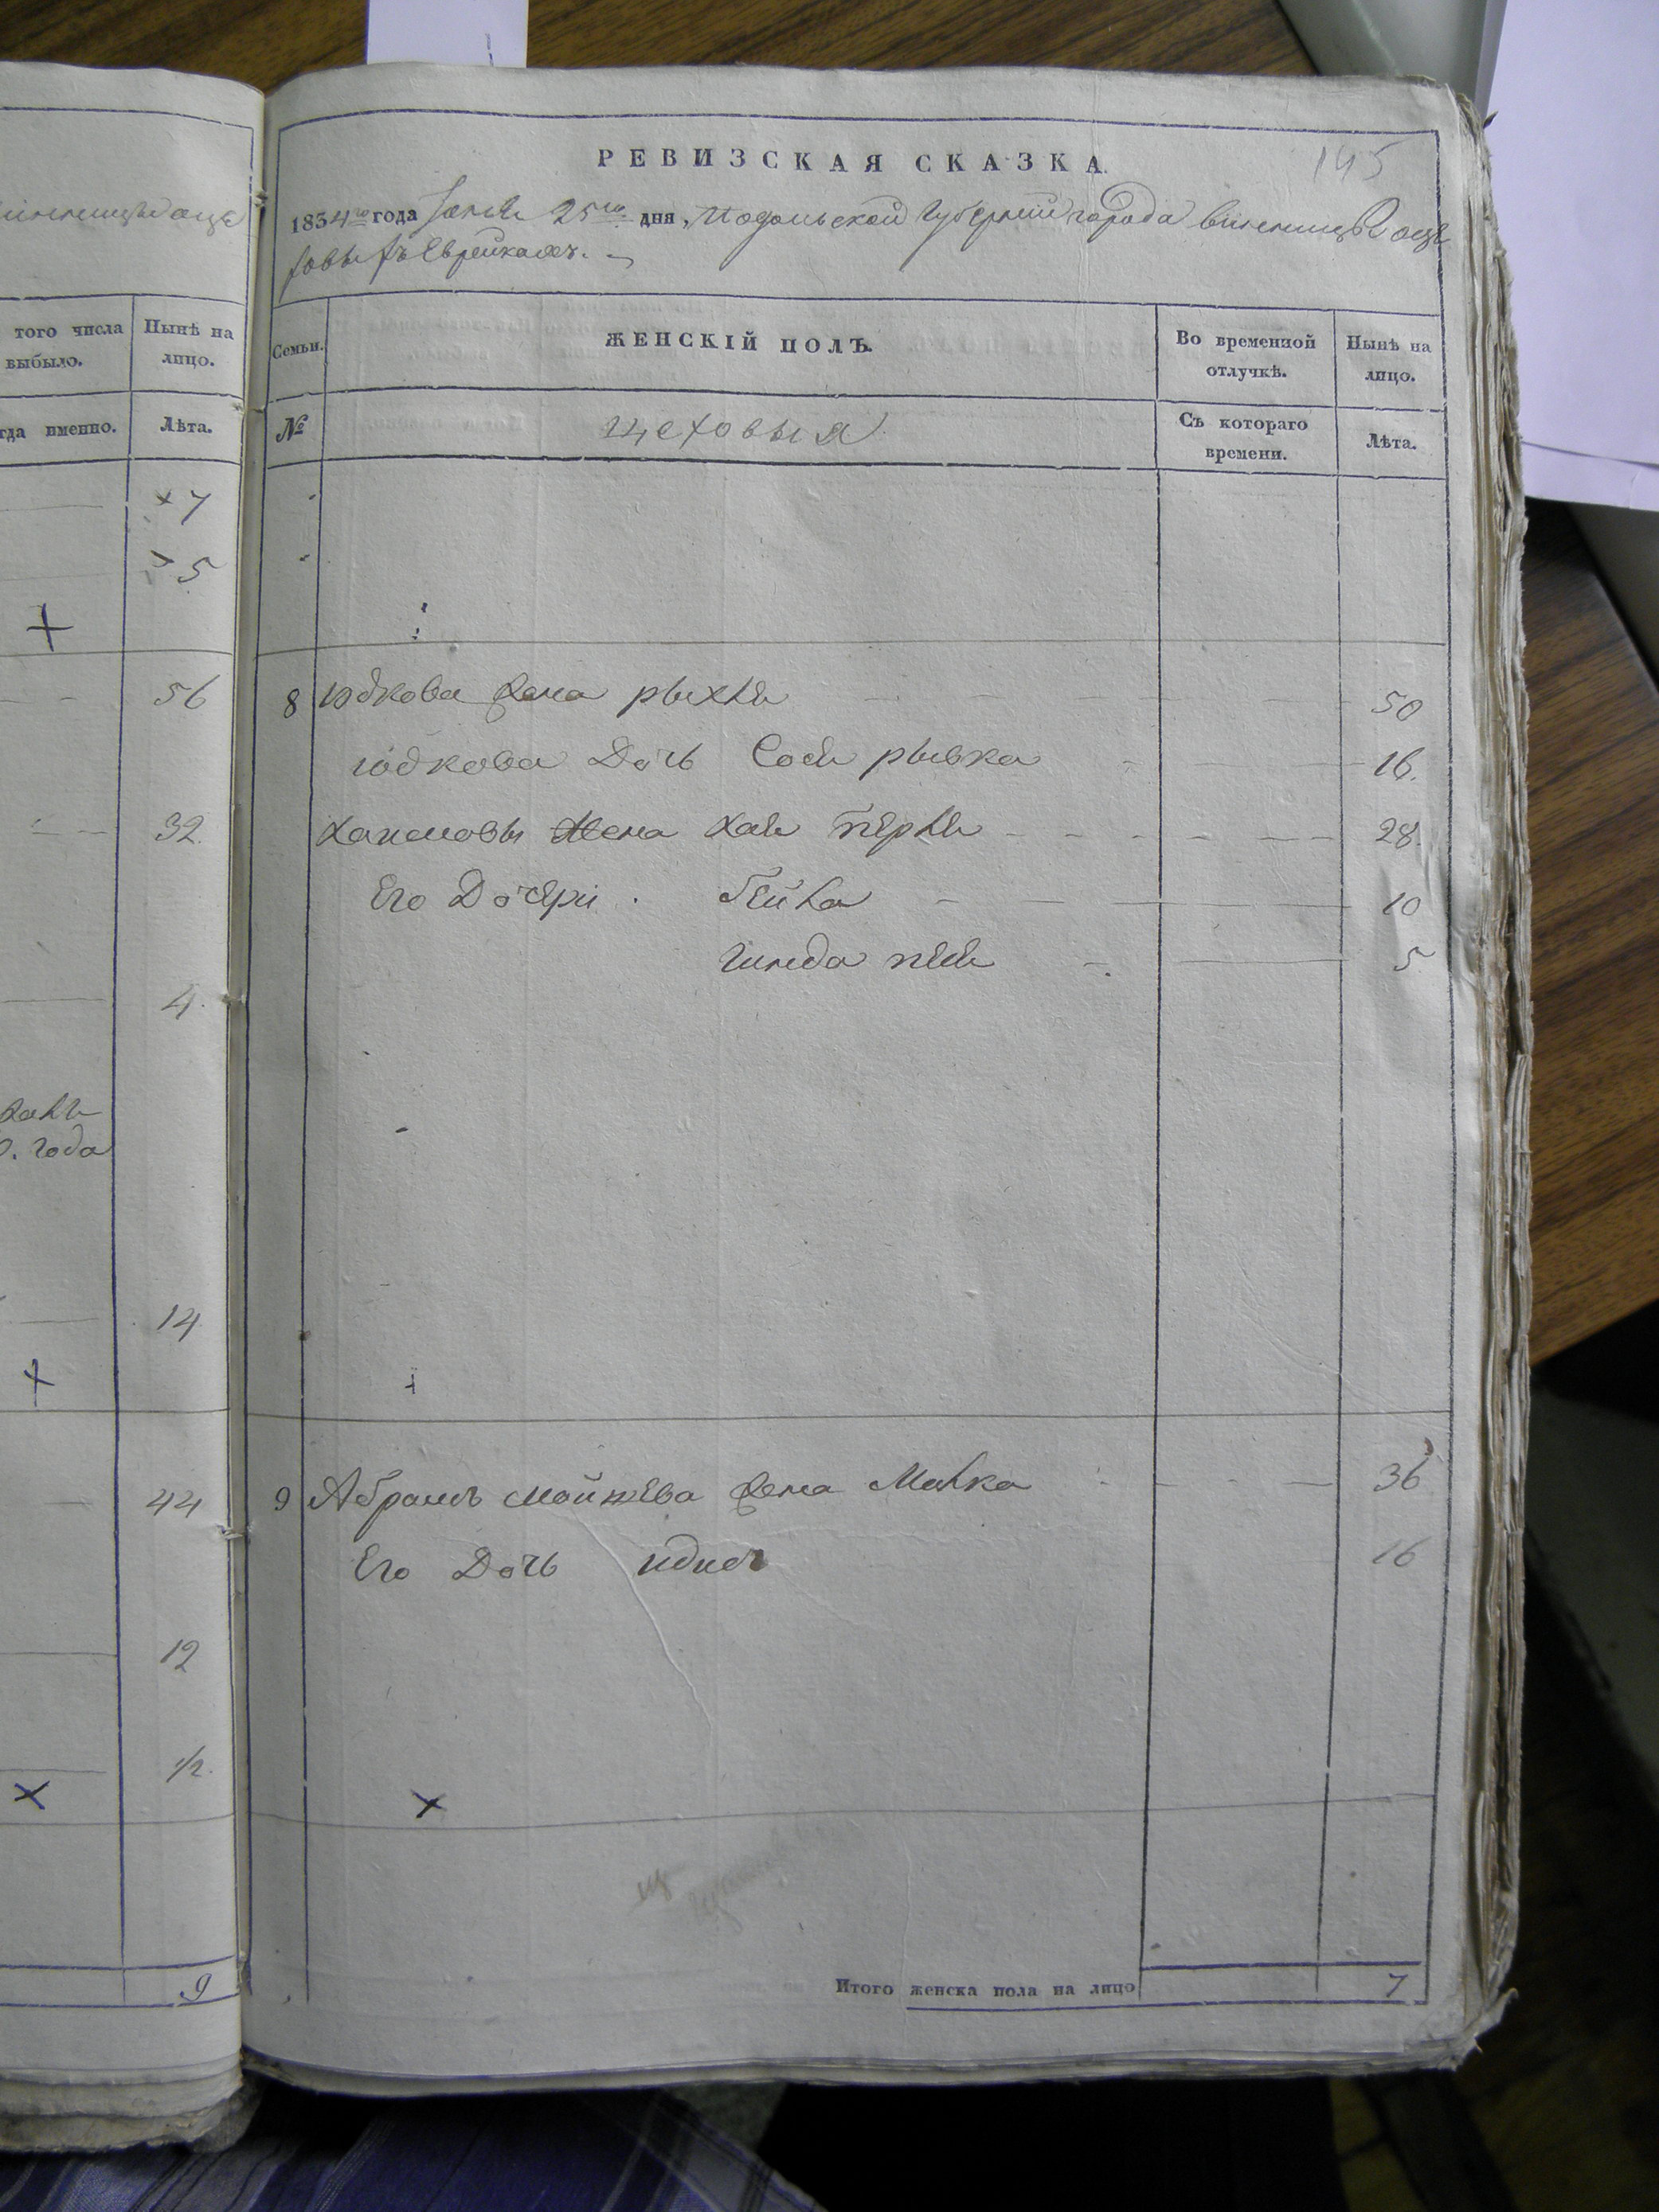 145
РЕВИЗСКАЯ СКАЗКА.
1834го года 25го дня, Подольской Губернии города Винницы О цѣ
ховыхъ Еврейкахъ.
того числа выбыло.
Нынѣ на лицо.
Семьи.
ЖЕНСКІЙ ПОЛЪ.
Во временной отлучкѣ.
Нынѣ на лицо.
гда именно.
Лѣта.
№
цеховыя
Съ котораго времени.
Лѣта.
7
5
56
8 юдкова жена рыхля 50
юдкова Дочь Сося рывка 16.
32. жена Хая перля 28.
Его Дочери. бейла 10
гинда песя 5
4.
. года
14
44
9 Абрамъ мойшева жена Малка 36
Его Дочь идись 16
12
1/2.
9
Итого женска пола на лицо 7